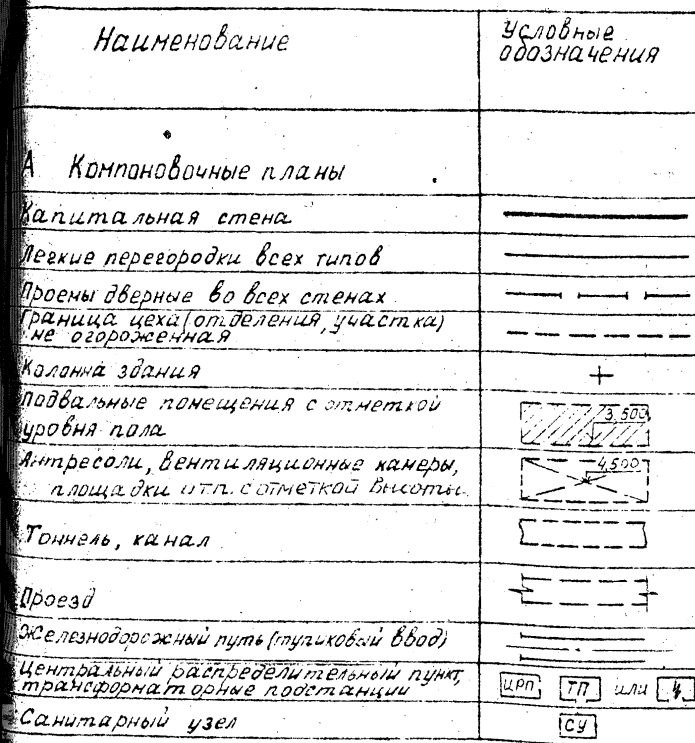 Наименование
Условные
обозначения
А Компоновочные планы
Капитальная стена
Легкие перегородки всех типов
Проемы дверные во всех стенах
Граница цеха (отделения, участка)
не огороженная
Колонна здания
Подвальные помещения с отметкой
уровня пола
3,500
Антресоли, вентиляционные камеры,
площадки и т.п. с отметкой высоты
4,500
Тоннель, канал
Проезд
Железнодорожный путь (тупиковый ввод)
Центральный распределительный пункт,
трансформаторные подстанции
ЦРП ТП или
Санитарный узел
СУ